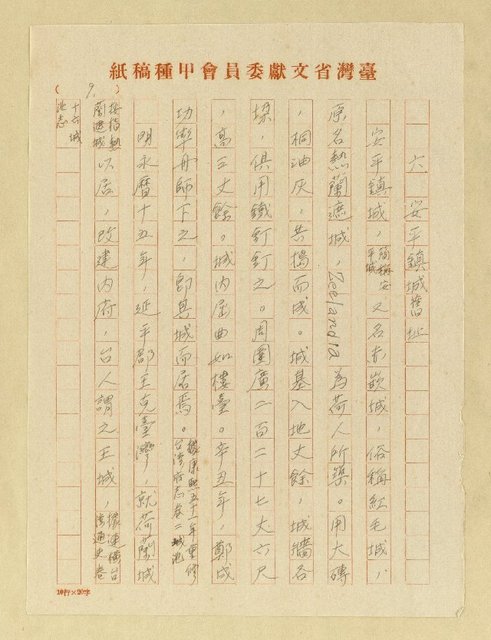 臺灣省文獻委員會甲種稿紙
六 安平鎮城舊址
安平鎮城,簡稱安平城又名赤嵌城,俗稱紅毛城,
原名熱蘭遮城,Zeelandia為荷人所築。用大磚
,桐油灰,共搗而成。城基入地丈餘,城牆各
垛,俱用鐵釘釘之。周圍廣二百二十七丈六尺
,高三丈餘。城內屈曲如樓臺。辛丑年,鄭成
功率舟師下之,即其城而居焉。據康熙五十一年重修台灣府志卷二城池
明永曆十五年,延平郡王克臺灣,就荷蘭城
以居,改建內府,台人謂之王城,據連橫台灣通史卷
十六城池志
按荷熱蘭遮城
(9.)
10行×20字